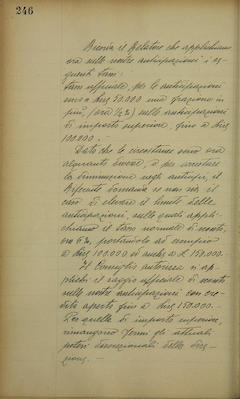 246
Ricorda il Relatore che applichiamo
ora nelle nostre anticipazioni i
seguenti tassi:
tasso ufficiale, per le anticipazioni
sino a Lire 50.000 una frazione in
più, (ora ½ %) nelle anticipazioni
di importo superiore, fino a Lire
100.000.
Dato che le circostanze sono ora
alquanto, e per arrestare
la diminuzione negli anticipi, il
Referente domanda se non sia il
caso di elevare il limite delle
anticipazioni, nelle quali appli-
chiamo il tasso normale di sconto,
ora 5%, portandolo ad esempio
a Lire 100.000 od anche a L. 150.000.
Il Consiglio autorizza si ap-
plichi il saggio ufficiale di sconto
nelle nostre anticipazioni con cre-
dito aperto fino a Lire 150.000.-
Per quelle di importo superiore,
rimangono fermi gli attuali
poteri discrezionali della Dire-
zione.-